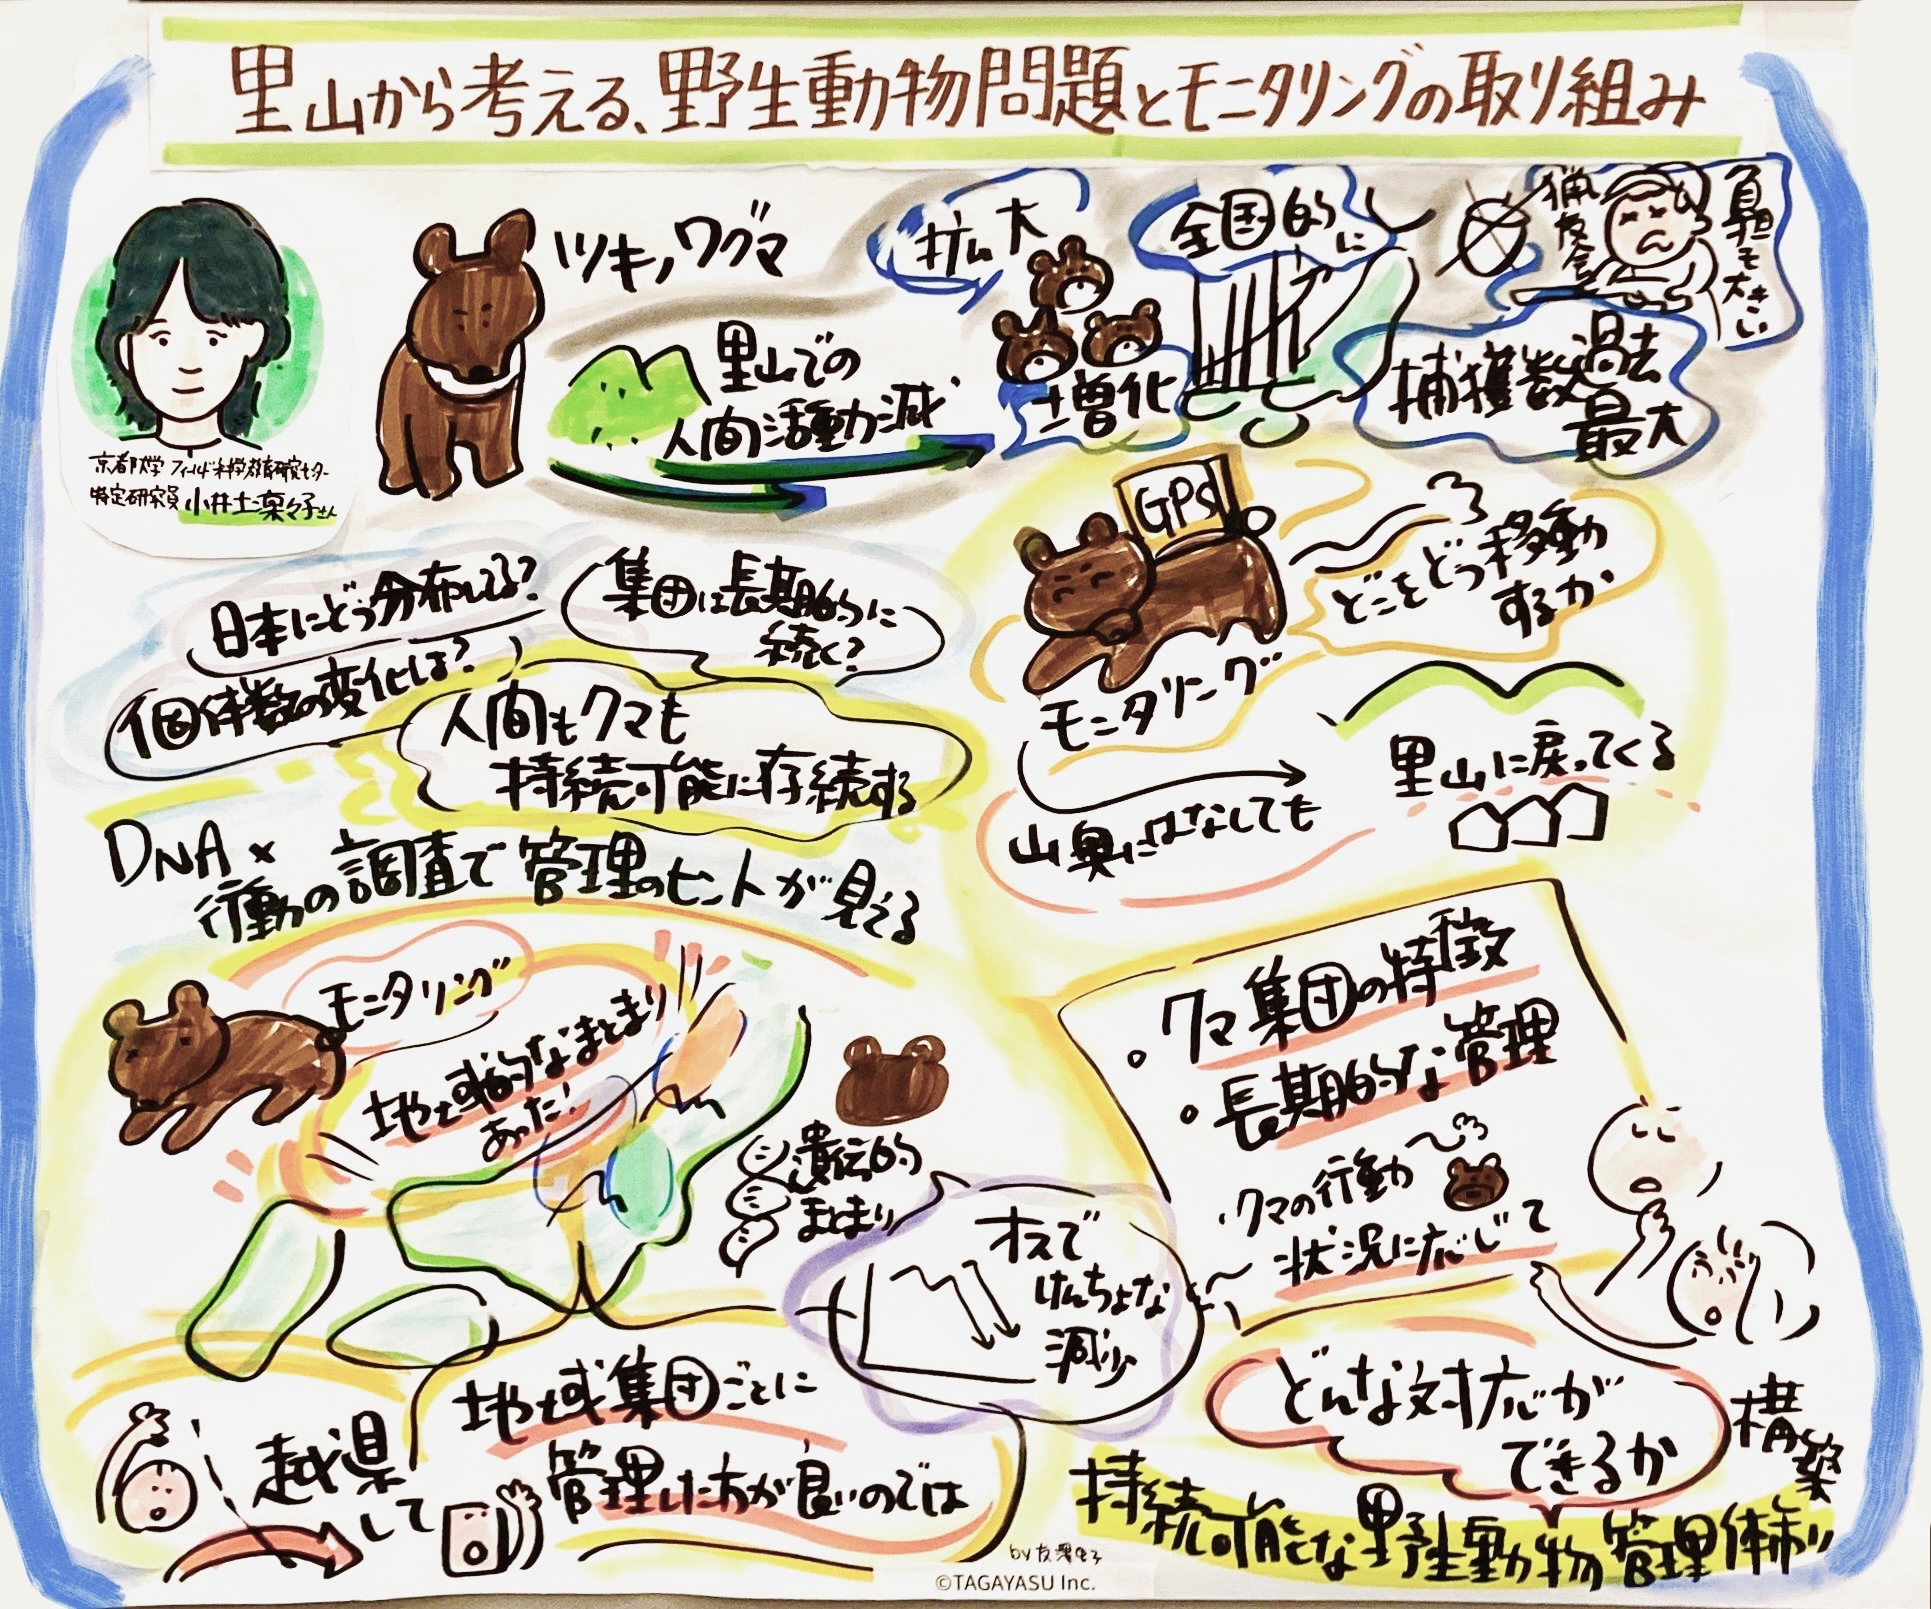 里山から考える、野生動物問題とモニタリングの取り組み
京都大学 フィールド科学教育研究センター
特定研究員 小井土凜々子さん
ツキノワグマ
里山での
人間活動減
拡大
増化
全国的に
猟友会
負担も大きい
捕獲数過去
最大
日本にどう分布してる?
個体数の変化は?
集団は長期的に
続く?
人間もクマも
持続可能に存続する
GPS
どこをどう移動
するか
モニタリング
山奥にはなしても
里山に戻ってくる
DNA×
行動の調査で管理のヒントが見える
モニタリング
地域的なまとまり
あった!
遺伝的
まとまり
オスで
けんちょな
減少
・クマ集団の特徴
・長期的な管理
・クマの行動
状況に応じて
越県
して
地域集団ごとに
管理した方が良いのでは
どんな対応が
できるか
持続可能な野生動物管理体制
構築
©TAGAYASU Inc.